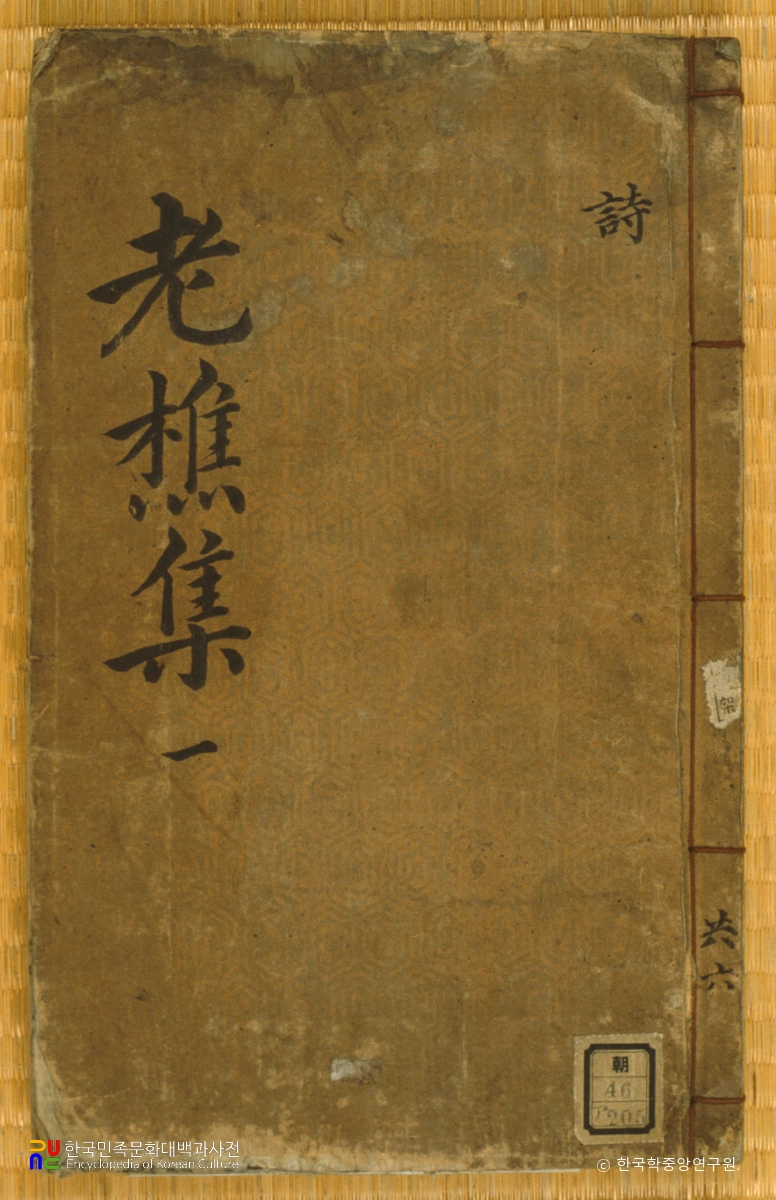 詩
老樵集 一
共六
朝
46
205
한국민족문화대백과사전
Encyclopedia of Korean Culture
© 한국학중앙연구원